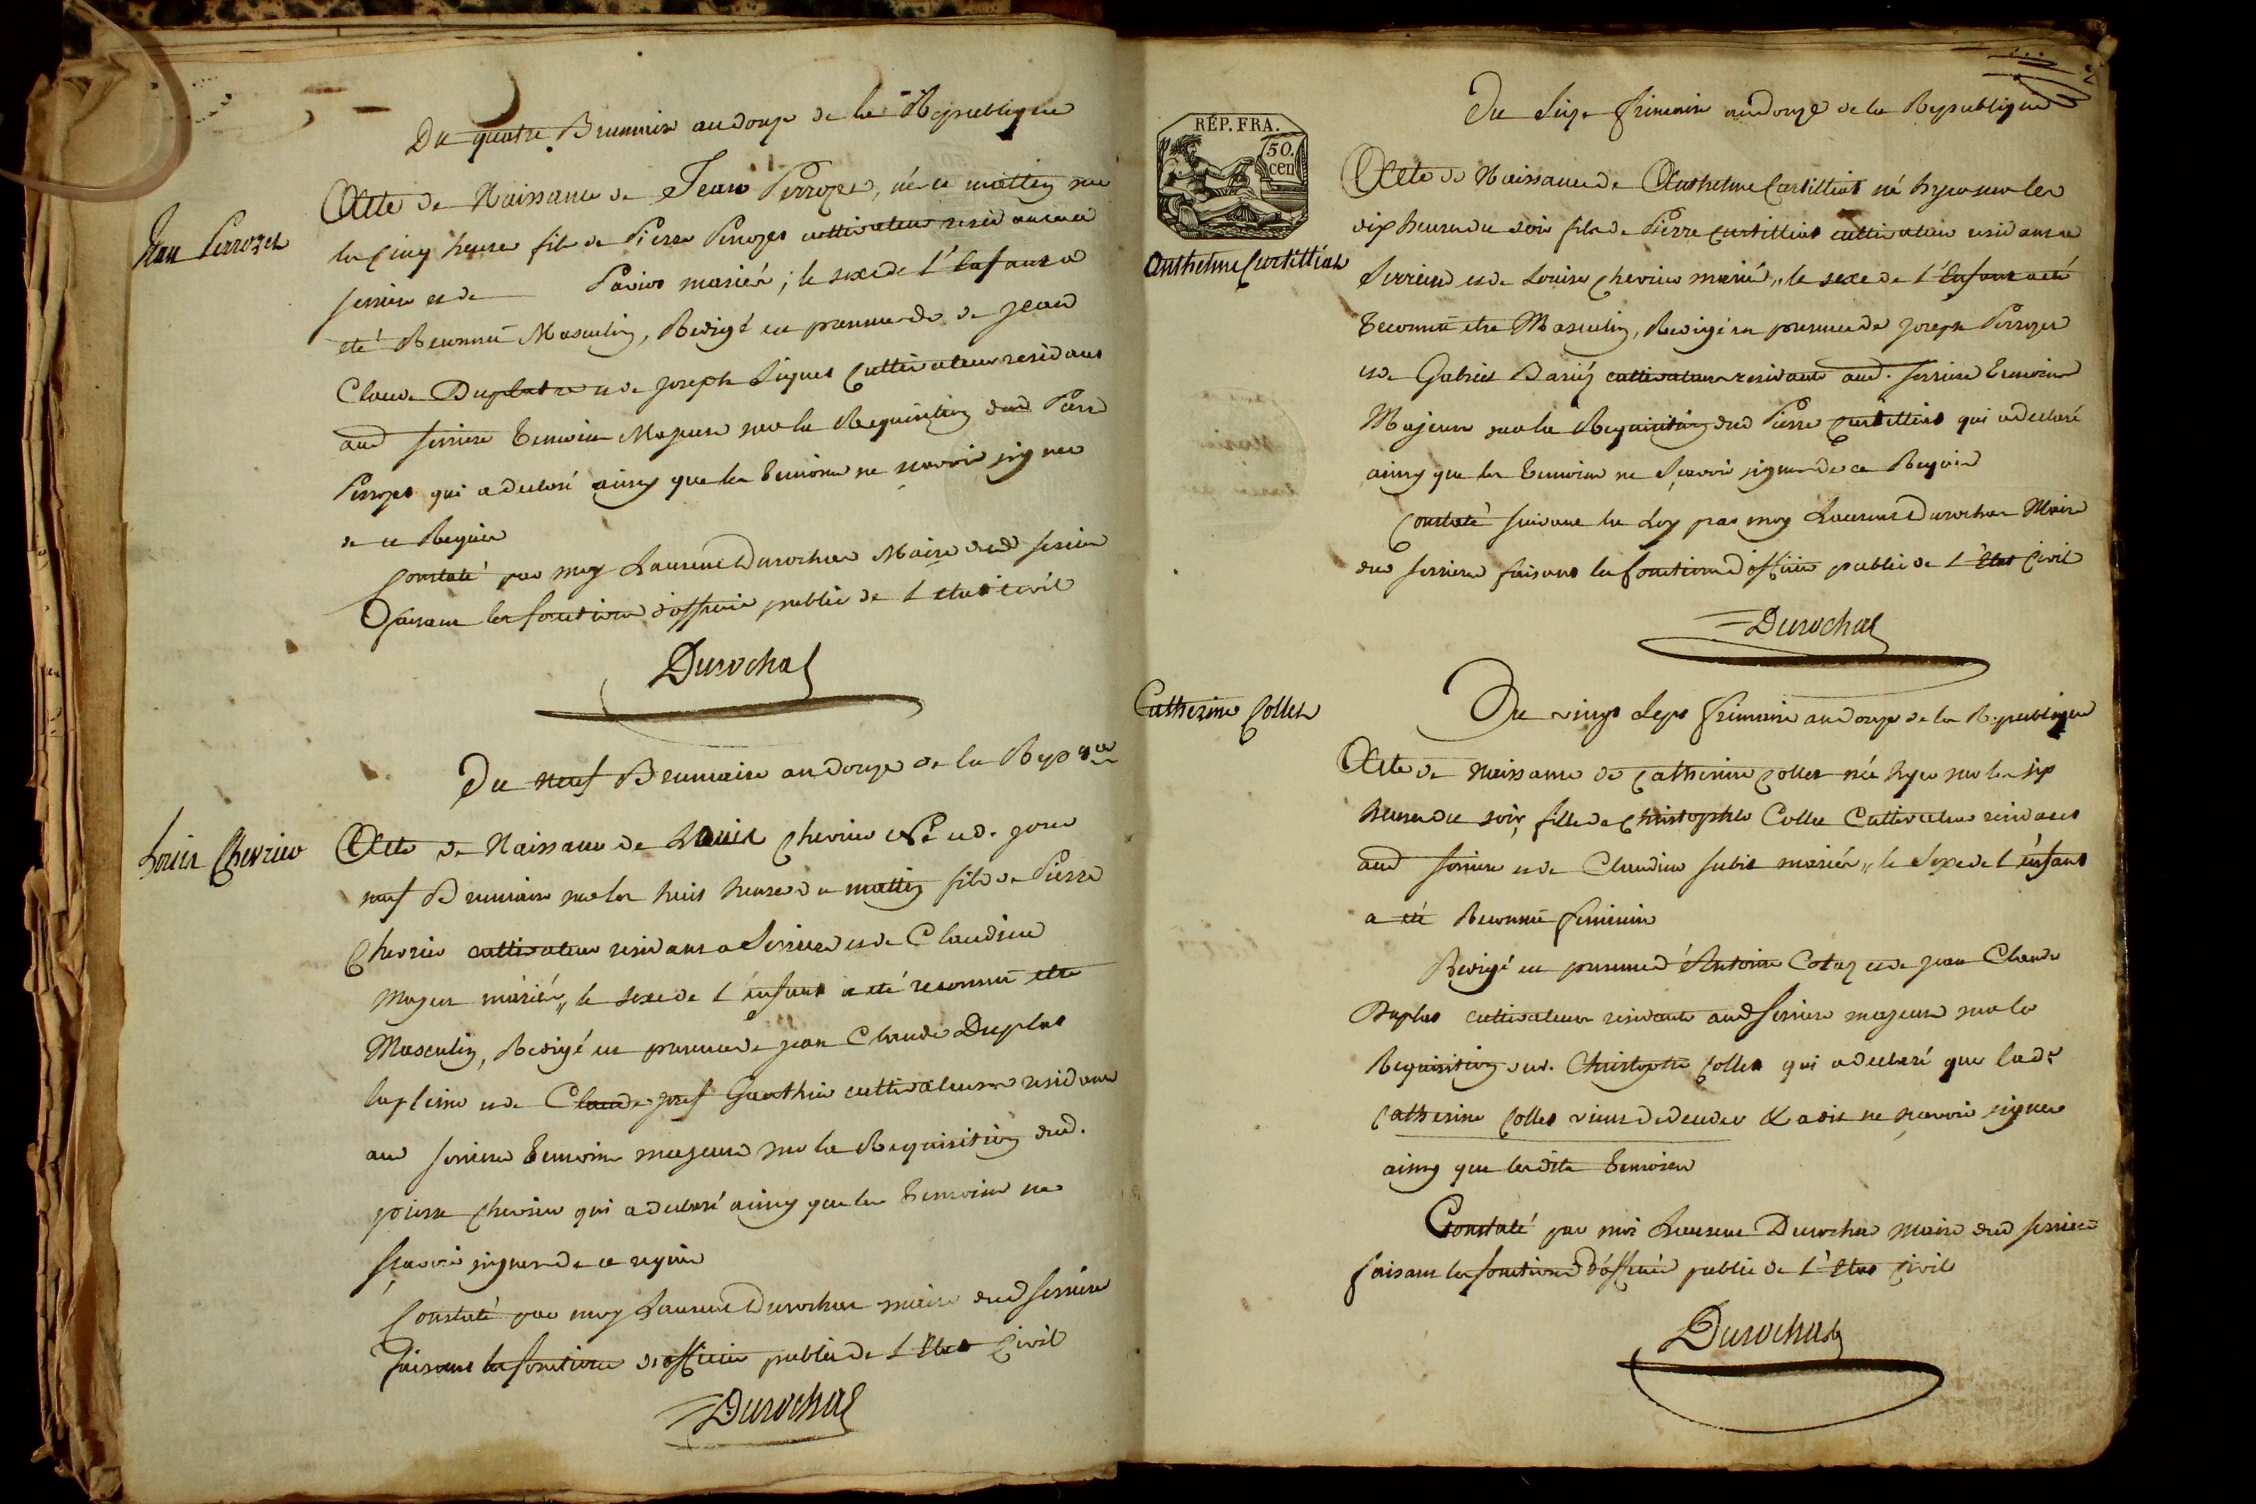 Du quatre Brumaire an douze de la Republique
Jean Perrozet
Acte de Naissance de Jean Perrozet, né ce mattin sur
les cinq heures fils de Pierre Perrozet cultivateur residant a
serriere et de Pavios mariés ; le sexe de l'Enfant a
eté Reconnu Masculin, Redigé en presence de Jean
Claude Duplatre et de joseph cultivateurs residant
aud serriere temoins Majeurs sur la Requisition dud Pierre
Perrozet qui a declaré ainsy que les temoins ne scavoir signer
de ce Requis
Constaté par moy Laurent Durochat Maire dud serriere
faisant les fonctions d'officier public de l'etat civil
Durochat
Du neuf Brumaire an douze de la Repque
Louis Chevrier
Acte de Naissance de Louis Chevrier né ced. jour
neuf Brumaire sur les huit heures du mattin fils de Pierre
Chevrier cultivateur residant a Serriere et de Claudine
Moger mariés, le sexe de l'enfant a eté reconnu etre
Masculin, Redigé en presence de jean Claude Duplat
et de Claude josef Gauthier cultivateurs residant
aud serriere temoins majeurs sur la Requisition dud.
pierre Chevrier qui a declaré ainsy que les temoins ne
scavoir signer de ce requis
Constaté par moy Laurent Durochat maire dud serriere
faisant les fonctions d'officier public de l'Etat Civil
Durochat
Du seize frimaire an douze de la Republique
RÉP. FRA.
50.
cen
Anthelme Curtilliat
Acte de Naissance de Anthelme Curtilliat né hyer sur les
dix heures du soir fils de Pierre Curtilliat cultivateur residant a
Serriere et de Louise Chevrier mariés, le sexe de l'Enfant a eté
Reconnu etre Masculin, Redigé en presence de joseph Perrozet
et de Gabriel cultivateurs residants aud. serriere temoins
Majeurs sur la Requisition dud Pierre Curtilliat qui a declaré
ainsy que les temoins ne scavoir signer de ce Requis
Constaté suivant la Loy par moy Laurent Durochat Maire
dud serriere faisant les fonctions d'officier public de l'Etat Civil
Durochat
Catherine Collet
Du vingt sept frimaire an douze de la Republique
Acte de Naissance de Catherine Collet née hyer sur les six
heures du soir, fille de Christophle Collet Cultivateur residant
aud serriere et de Claudine mariés, le sexe de l'enfant
a eté Reconnu feminin
Redigé en presence d'Antoine Cotaz et de jean Claude
Duplat cultivateurs residants aud serriere majeurs sur la
Requisition dud. Christophe Collet qui a declaré que lade
Catherine Collet vient de deceder & a dit ne scavoir signer
ainsy que lesdits temoins
Constaté par moi Laurent Durochat maire dud serriere
faisant les fonctions d'officier public de l'Etat Civil
Durochat